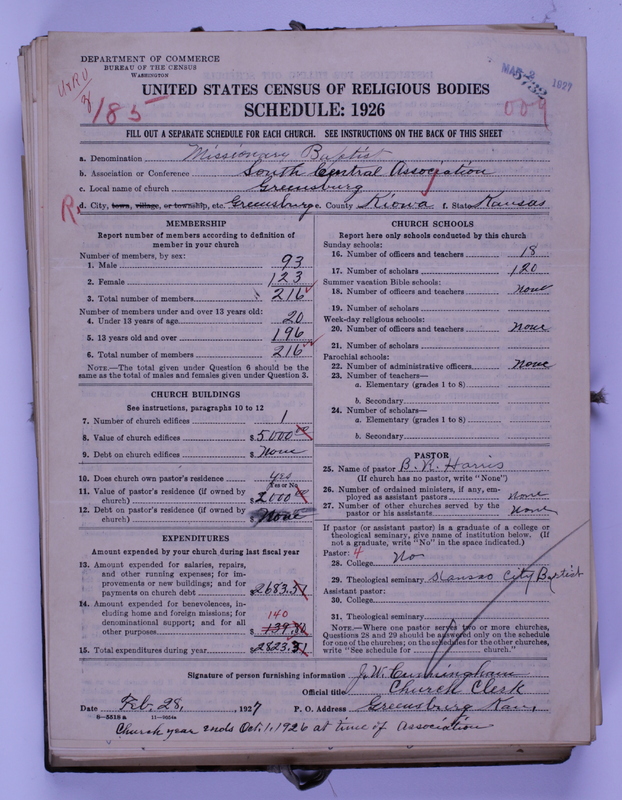 DEPARTMENT OF COMMERCE
BUREAU OF THE CENSUS
WASHINGTON
185
MAR 2 1927
5732
009
UNITED STATES CENSUS OF RELIGIOUS BODIES
SCHEDULE: 1926
FILL OUT A SEPARATE SCHEDULE FOR EACH CHURCH. SEE INSTRUCTIONS ON THE BACK OF THIS SHEET
a. Denomination Missionary Baptist
b. Association or Conference South Central Association
c. Local name of church Greensburg
R. d. City, town, village, or township, etc. Greensburg e. County Kiowa f. State Kansas
MEMBERSHIP
Report number of members according to definition of
member in your church
Number of members, by sex:
1. Male 93
2. Female 123
3. Total number of members 216
Number of members under and over 13 years old:
4. Under 13 years of age 20
5. 13 years old and over 196
6. Total number of members 216
NOTE.—The total given under Question 6 should be the
same as the total of males and females given under Question 3.
CHURCH BUILDINGS
See instructions, paragraphs 10 to 12
7. Number of church edifices 1
8. Value of church edifices $5000 00
9. Debt on church edifices $None
10. Does church own pastor's residence? yes
Yes or No
11. Value of pastor's residence (if owned by
church) $2000
12. Debt on pastor's residence (if owned by
church) $None
EXPENDITURES
Amount expended by your church during last fiscal year
13. Amount expended for salaries, repairs,
and other running expenses; for im-
provements or new buildings; and for
payments on church debt $2683.51
14. Amount expended for benevolences, in-
cluding home and foreign missions; for
denominational support; and for all
other purposes 140 $139.80
15. Total expenditures during year $2823.31
CHURCH SCHOOLS
Report here only schools conducted by this church
Sunday schools:
16. Number of officers and teachers 18
17. Number of scholars 120
Summer vacation Bible schools:
18. Number of officers and teachers None
19. Number of scholars
Week-day religious schools:
20. Number of officers and teachers None
21. Number of scholars
Parochial schools:
22. Number of administrative officers None
23. Number of teachers—
a. Elementary (grades 1 to 8)
b. Secondary
24. Number of scholars—
a. Elementary (grades 1 to 8)
b. Secondary
PASTOR
25. Name of pastor B. R. Harris
(If church has no pastor, write "None")
26. Number of ordained ministers, if any, em-
ployed as assistant pastors None
27. Number of other churches served by the
pastor or his assistants None
If pastor (or assistant pastor) is a graduate of a college or
theological seminary, give name of institution below. (If
not a graduate, write "No" in the space indicated.)
Pastor: 4
28. College No
29. Theological seminary Kansas City Baptist
Assistant pastor:
30. College
31. Theological seminary
NOTE.—Where one pastor served two or more churches,
Questions 28 and 29 should be answered only on the schedule
for one of the churches; on the schedules for the other churches,
write "See schedule for church."
Signature of person furnishing information J. W. Cunningham
Official title Church Clerk
Date Feb. 28, 1927 P. O. Address Greensburg Kan.
8—5518a 11—9054a
Church year ends Oct. 1, 1926 at time of Association